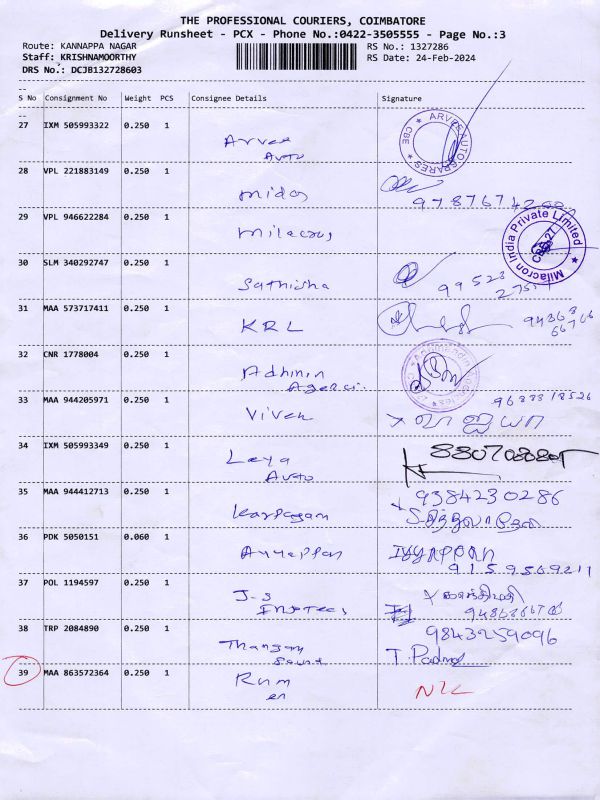 THE PROFESSIONAL COURIERS, COIMBATORE
Delivery Runsheet - PCX - Phone No.:0422-3505555 - Page No.:3
Route: KANNAPPA NAGAR
RS No.: 1327286
Staff: KRISHNAMOORTHY
RS Date: 24-Feb-2024
DRS No.: DCJB132728603
S No Consignment No Weight PCS Consignee Details Signature
27 IXM 505993322 0.250 1
ARVEE AUTO SPARES
CBE
Auto
28 VPL 221883149 0.250 1
midas
29 VPL 946622284 0.250 1
Milacron India Private Limited
30 SLM 340292747 0.250 1
Sathisha
99523
31 MAA 573717411 0.250 1
KRL
94363
66766
32 CNR 1778004 0.250 1
33 MAA 944205971 0.250 1
Vivek
9688818526
34 IXM 505993349 0.250 1
Laya
Auto
35 MAA 944412713 0.250 1
Karpagam
9384230286
36 PDK 5050151 0.060 1
Ayyappan
IYYAPPAN
9159569211
37 POL 1194597 0.250 1
J-S
38 TRP 2084890 0.250 1
9843259096
Thangam
Sound
T. Padma
39 MAA 863572364 0.250 1